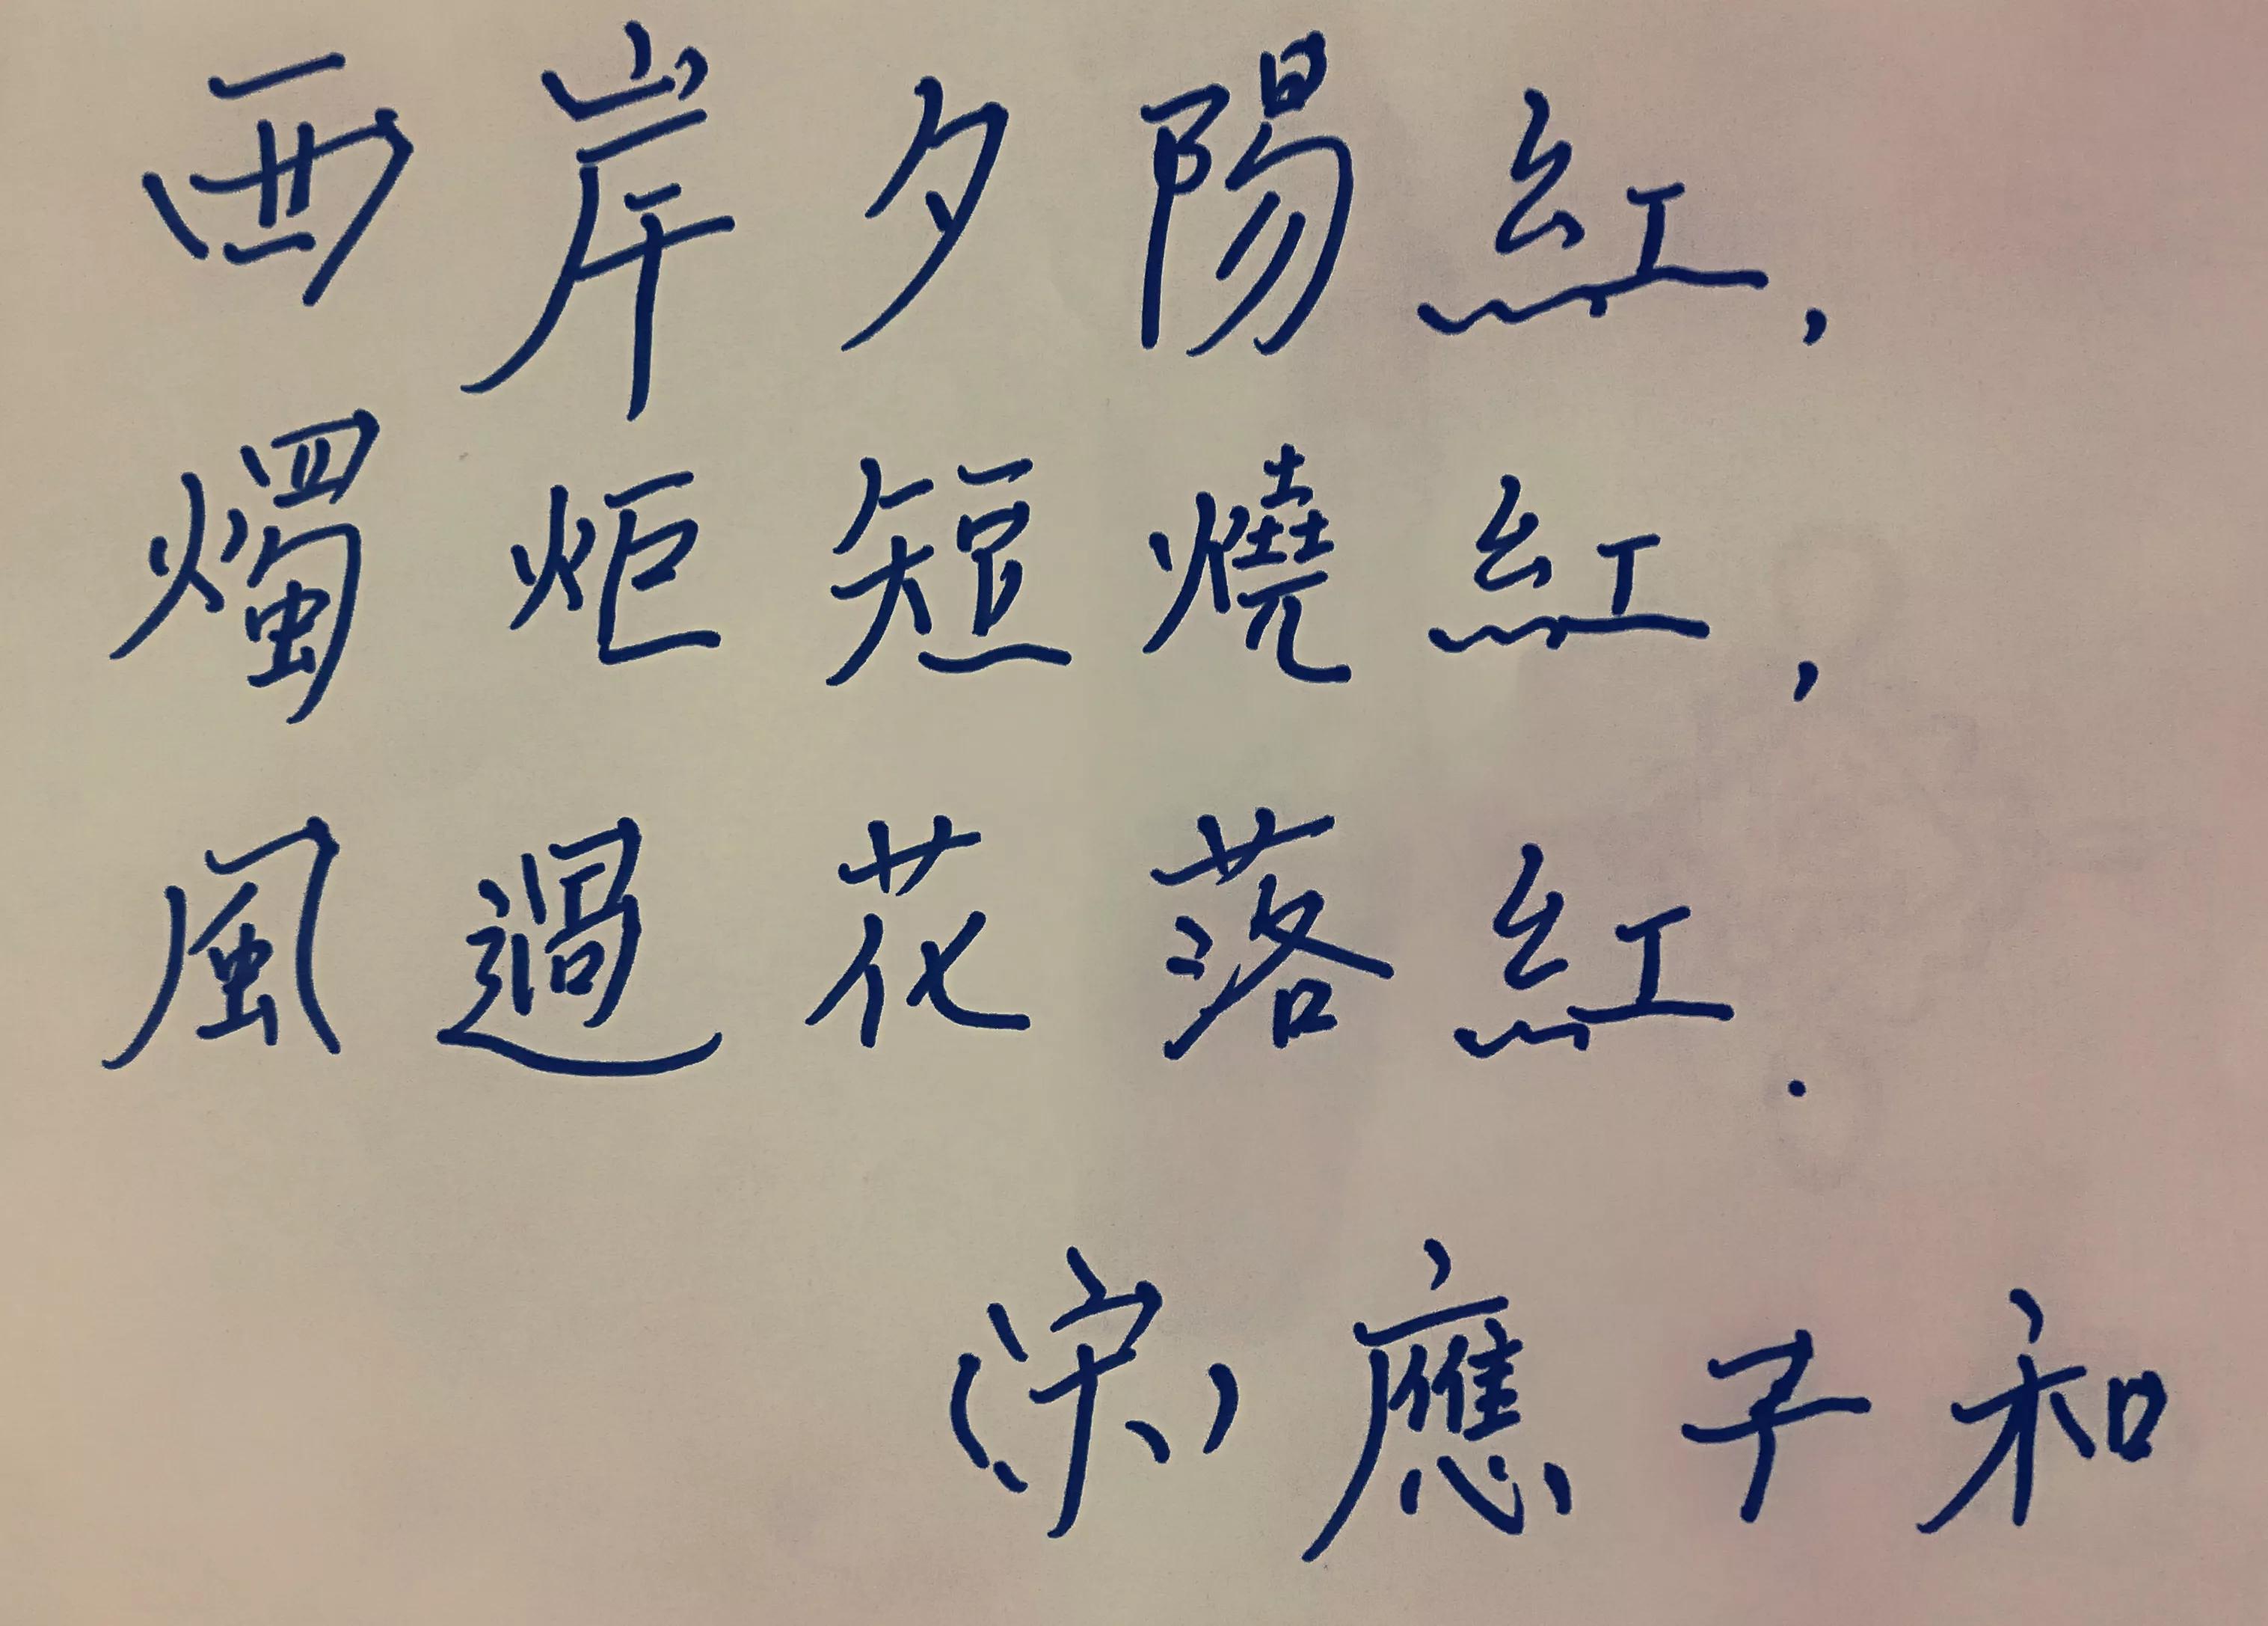 西岸夕陽紅,
燭炬短燒紅,
風過花落紅.
(宋)應子和